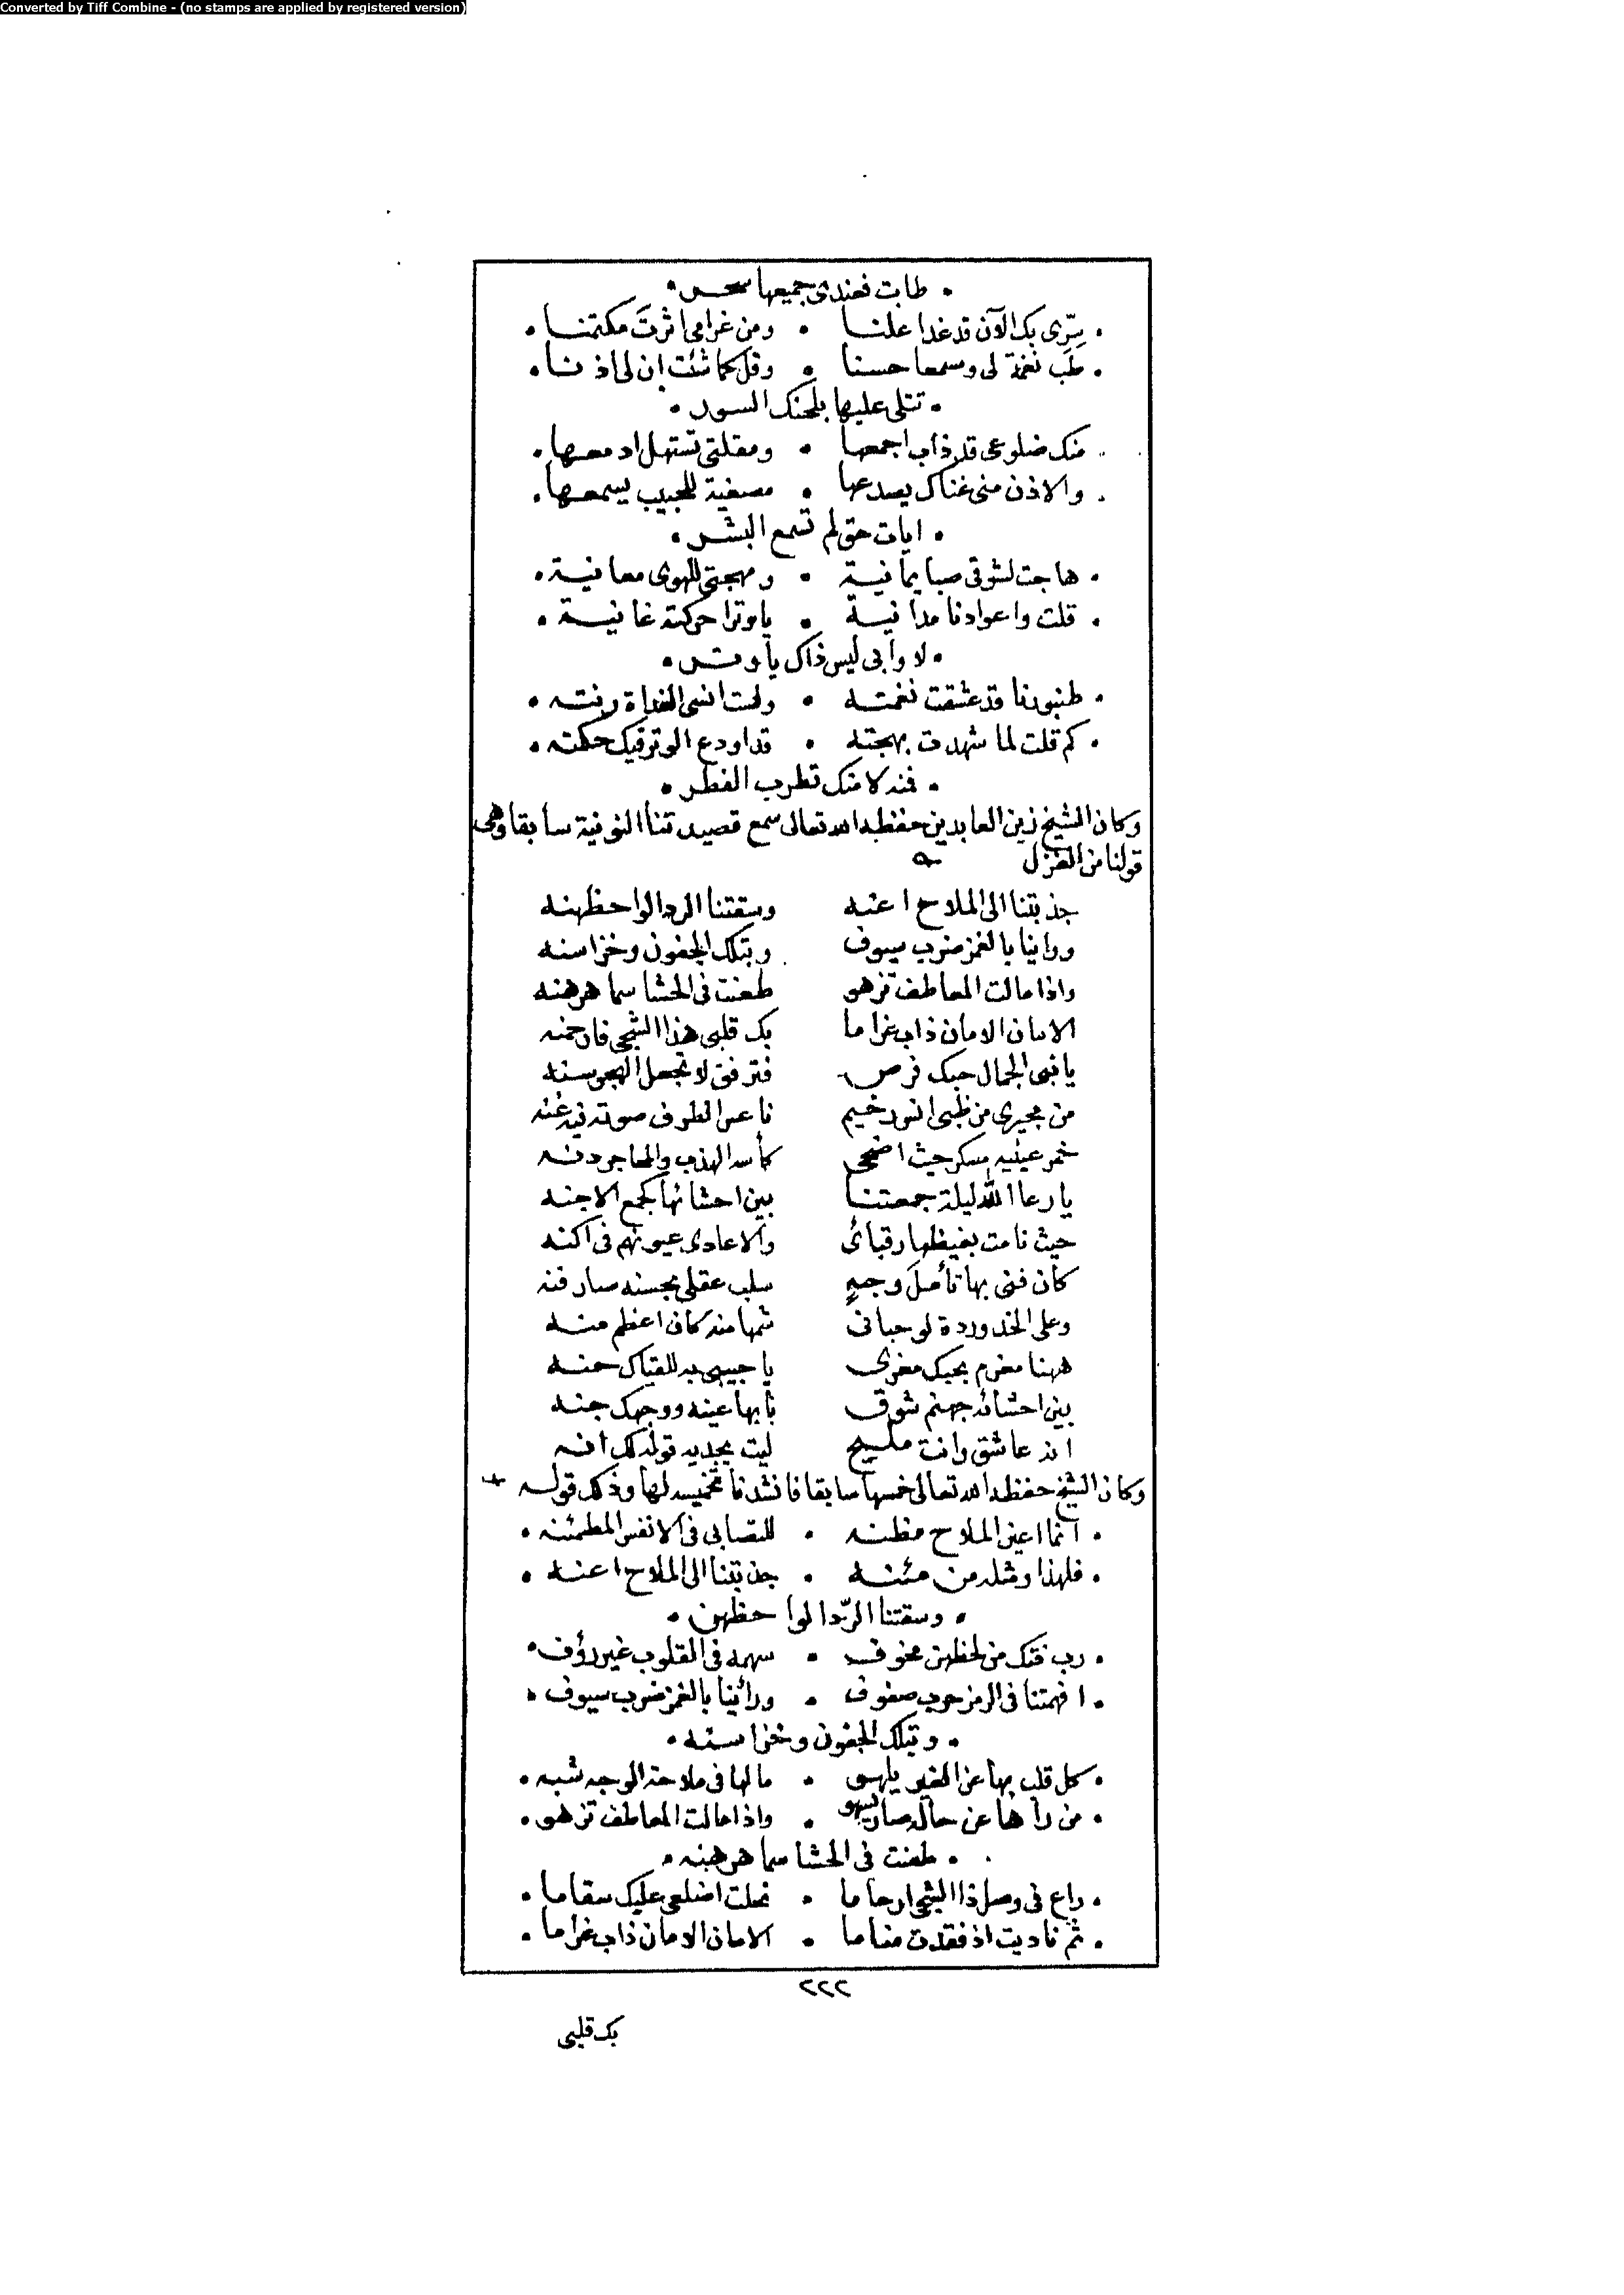 Converted by Tiff Combine - (no stamps are applied by registered version)
• طابت فعندى جميعها سحر •
• سِرّى بك الآن قد غدا علنا • ومن غرامى اثرتَ مكتمنا •
• طب نغمة لى وسمعا حسنا • وقل كما شئت ان لى اذنا •
• تتلى عليها بلحنك السور •
• منك ضلوعى قد ذاب اجمعها • ومقلتى تستهل ادمعها •
• والاذن منى غناك يصدعها • مصغية للحبيب يسمعها •
• ايات حق لم تسمع البشر •
• هاجت لشوقى صبا يمانية • ومهجتى للهوى معانية •
• قلت واعوادنا مدانية • ياوترا حركته غانية •
• لا وابى ليس ذاك ياوتر •
• طنبورنا قد عشقت نغمته • ولست انسى الغداة رنته •
• كم قلت لما شهدت بهجته • قد اودع الوتر فيك حكمته •
• فمنك تطرب الفطر •
وكان الشيخ زين العابدين حفظه الله تعالى سمع قصيدتنا النونية سابقا وهى
قولنا من الغزل
جذبتنا الى الملاح اعنه وسقتنا الردا لواحظهنه
وراينا بالغمز ضرب سيوف وبتلك الجفون وخز اسنه
واذا مالت المعاطف تزهو طعنت فى الحشا سماهرهنه
الامان الامان ذاب غراما بك قلبى هذا الشجى فارحمنه
يا نبى الجمال حبك فرض فترفق لا تجعل الهجر سنه
من مجيرى من ظبى انس رخيم ناعس الطرف صوته فيه غنه
خمر عينيه مسكر حيث اضحى كأسه الهدب والمحاجر دنه
يا رعا الله ليلة جمعتنا بين احشائها كجمع الاجنه
حيث نامت بغيظها رقبائى والاعادى عيونهم فى اكنه
كان فنى بها تأمل وجهٍ سلب عقلى بحسنه صار فنه
وعلى الخد وردة لو حبانى شمها منه كان اعظم منه
ههنا مغرم بحبك مغرى يا حبيبى به للقياك حنه
بين احشائه جهنم شوق يا بها عينه ووجهك جنه
انه عاشق وانت مليح ليت يجديه قوله لك انه
وكان الشيخ حفظه الله تعالى خمسها سابقا فانشدنا تخميسه لها وذلك قوله
• انما اعين الملاح مظنه • للتصابى فى الانفس المطمئنه •
• فلهذا ومثله من مئنه • جذبتنا الى الملاح اعنه •
• وسقتنا الرّدا لواحظهن •
• رب فتك من لحظهن مخوف • سهمه فى القلوب غير رؤف •
• افهمتنا فى الرمز حرب صفوف • ورأينا بالغمز ضرب سيوف •
• وبتلك الجفون وخز اسنه •
• كل قلب بها عن الغير يلهو • مالها فى ملاحة الوجه شبه •
• من رأها عن حاله صار يسهو • واذا مالت المعاطف تزهو •
• طعنت فى الحشا سماهرهنه •
• راع فى وصل ذا الشجى ارحاما • نحلت اضلعى عليك سقاما •
• ثم ناديت اذ فقدت مناما • الامان الامان ذاب غراما •
٢٢٢
بك قلبى